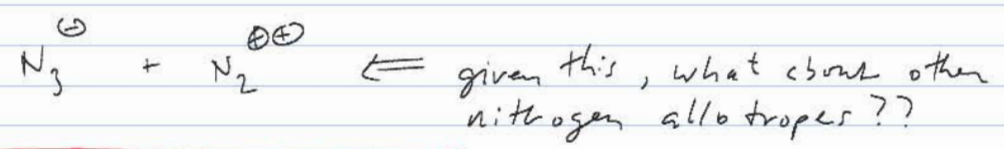 N₃⊖ + N₂⊕⊕ ⇐ given this, what about other
nitrogen allotropes??